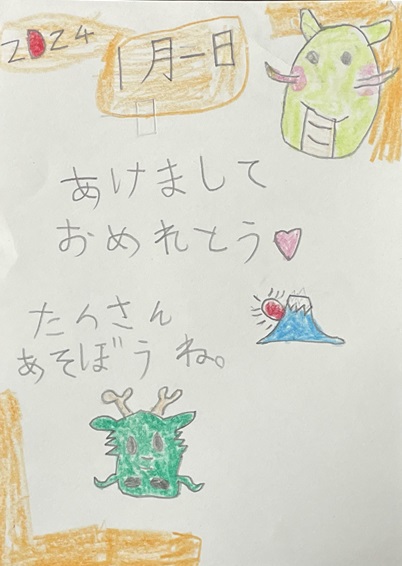 2024
1月一日
あけまして
おめれとう
たくさん
あそぼうね。